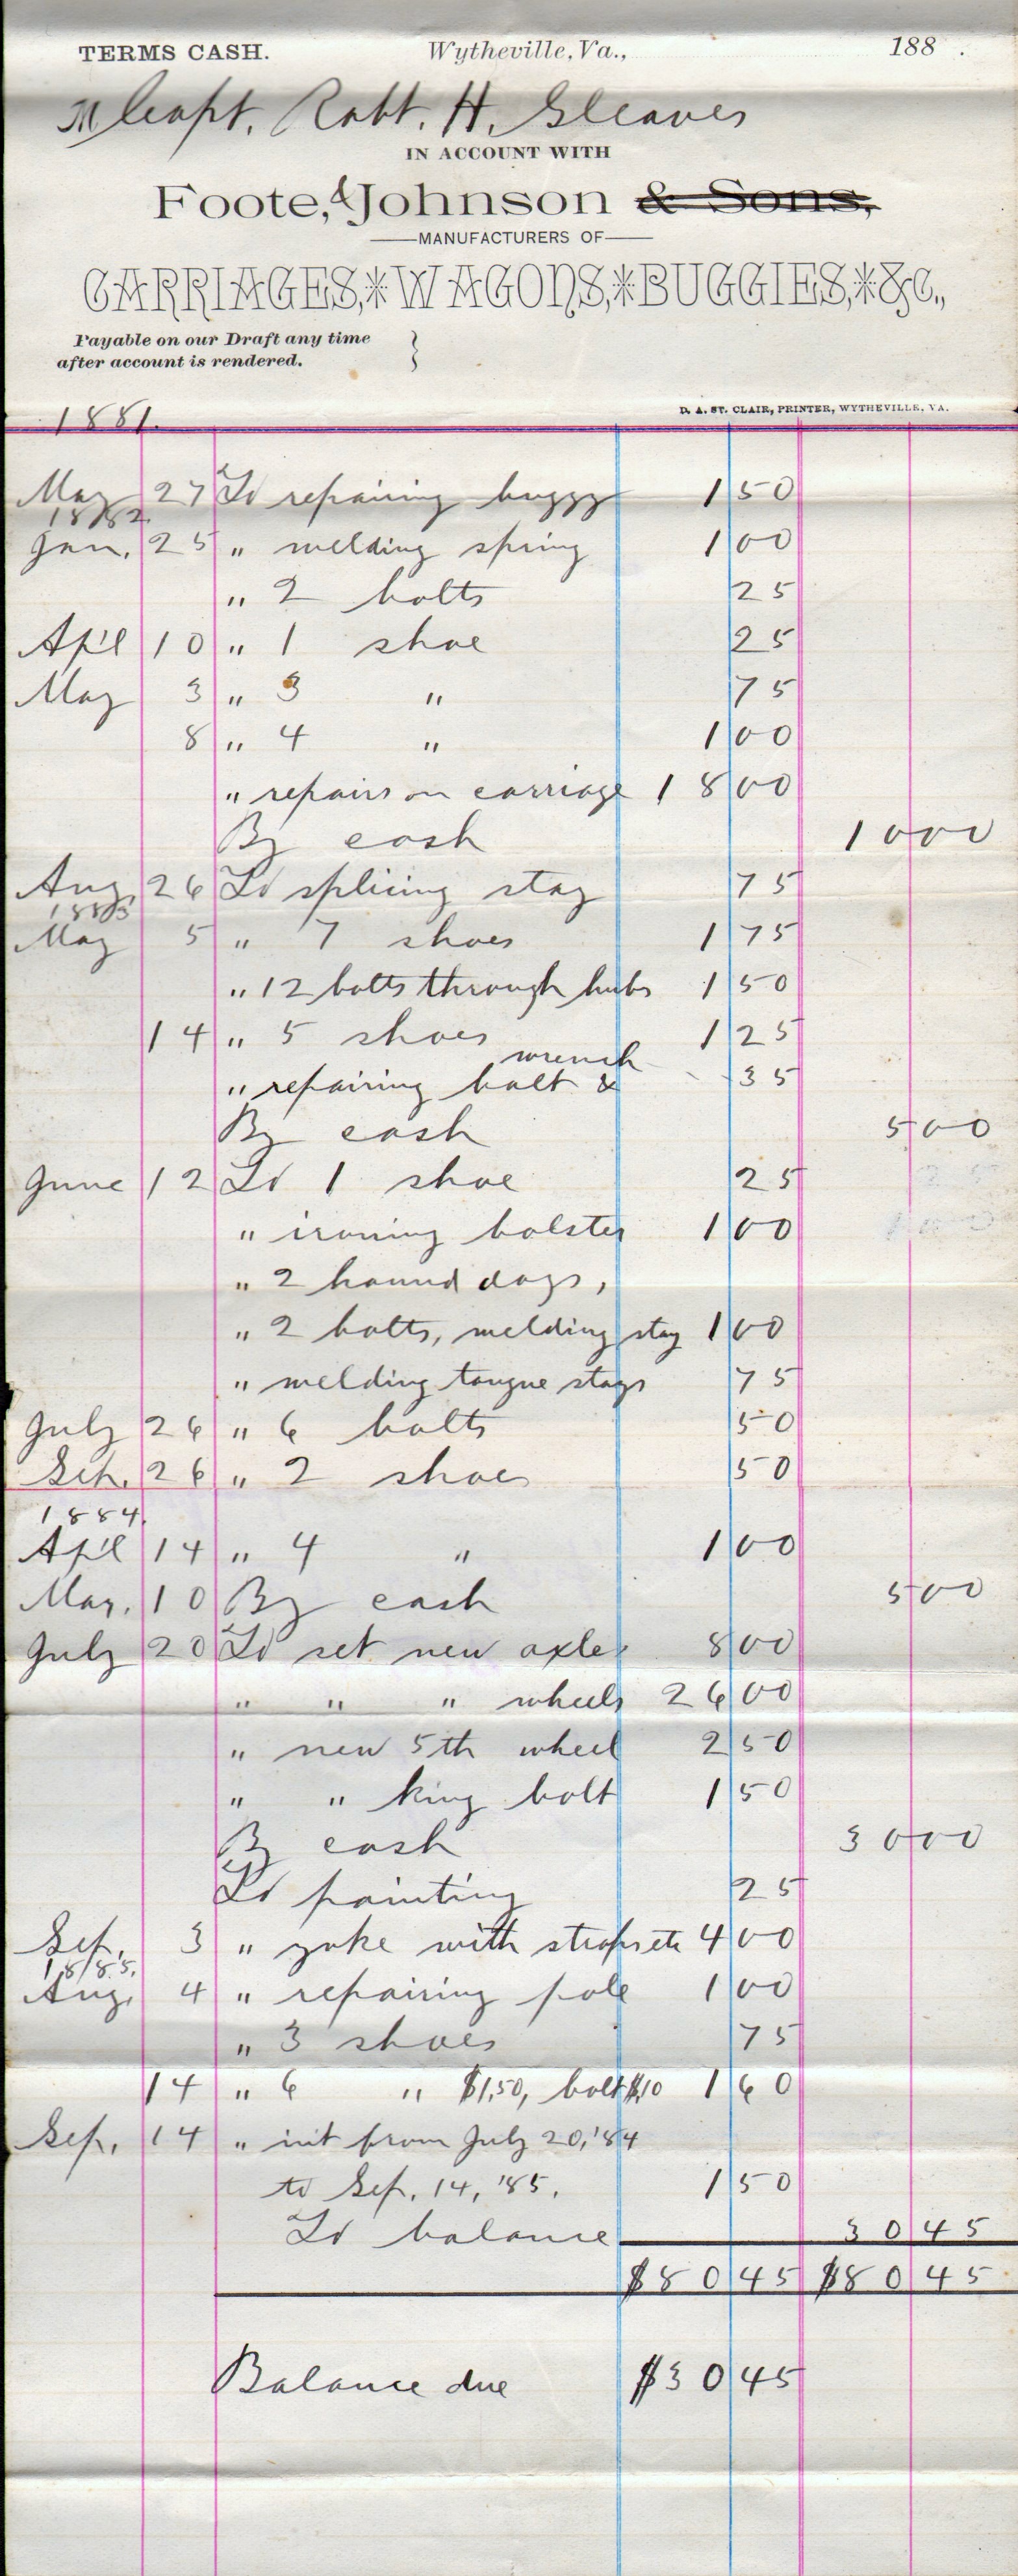 TERMS CASH. Wytheville, Va., 188 .
M Capt. Robt. H. Gleaves
IN ACCOUNT WITH
Foote, & Johnson & Sons,
MANUFACTURERS OF
CARRIAGES,*WAGONS,*BUGGIES,*&C.,
Payable on our Draft any time
after account is rendered.
D. A. ST. CLAIR, PRINTER, WYTHEVILLE, VA.
1881.
May 27 To repairing buggy 1 50
1882
Jan. 25 " welding spring 1 00
" 2 bolts 25
Ap'l 10 " 1 shoe 25
May 3 " 3 " 75
8 " 4 " 1 00
" repairs on carriage 18 00
By cash 10 00
Aug. 26 To splicing stay 75
1883
May 5 " 7 shoes 1 75
" 12 bolts through hubs 1 50
14 " 5 shoes 1 25
" repairing bolt & wrench 35
By cash 5 00
June 12 To 1 shoe 25
" ironing bolster 1 00
" 2 hound dogs,
" 2 bolts, welding stay 1 00
" welding tongue stays 75
July 26 " 6 bolts 50
Sep. 26 " 2 shoes 50
1884
Ap'l 14 " 4 " 1 00
May. 10 By cash 5 00
July 20 To set new axles 8 00
" " " wheels 26 00
" new 5th wheel 2 50
" " king bolt 1 50
By cash 30 00
To painting 25
Sep. 3 " yoke with straps etc 4 00
1885.
Aug. 4 " repairing pole 1 00
" 3 shoes 75
14 " 6 " $1,50, bolt $,10 1 60
Sep. 14 " int from July 20,'84
to Sep. 14, '85. 1 50
To balance 30 45
$80 45 $80 45
Balance due $30 45